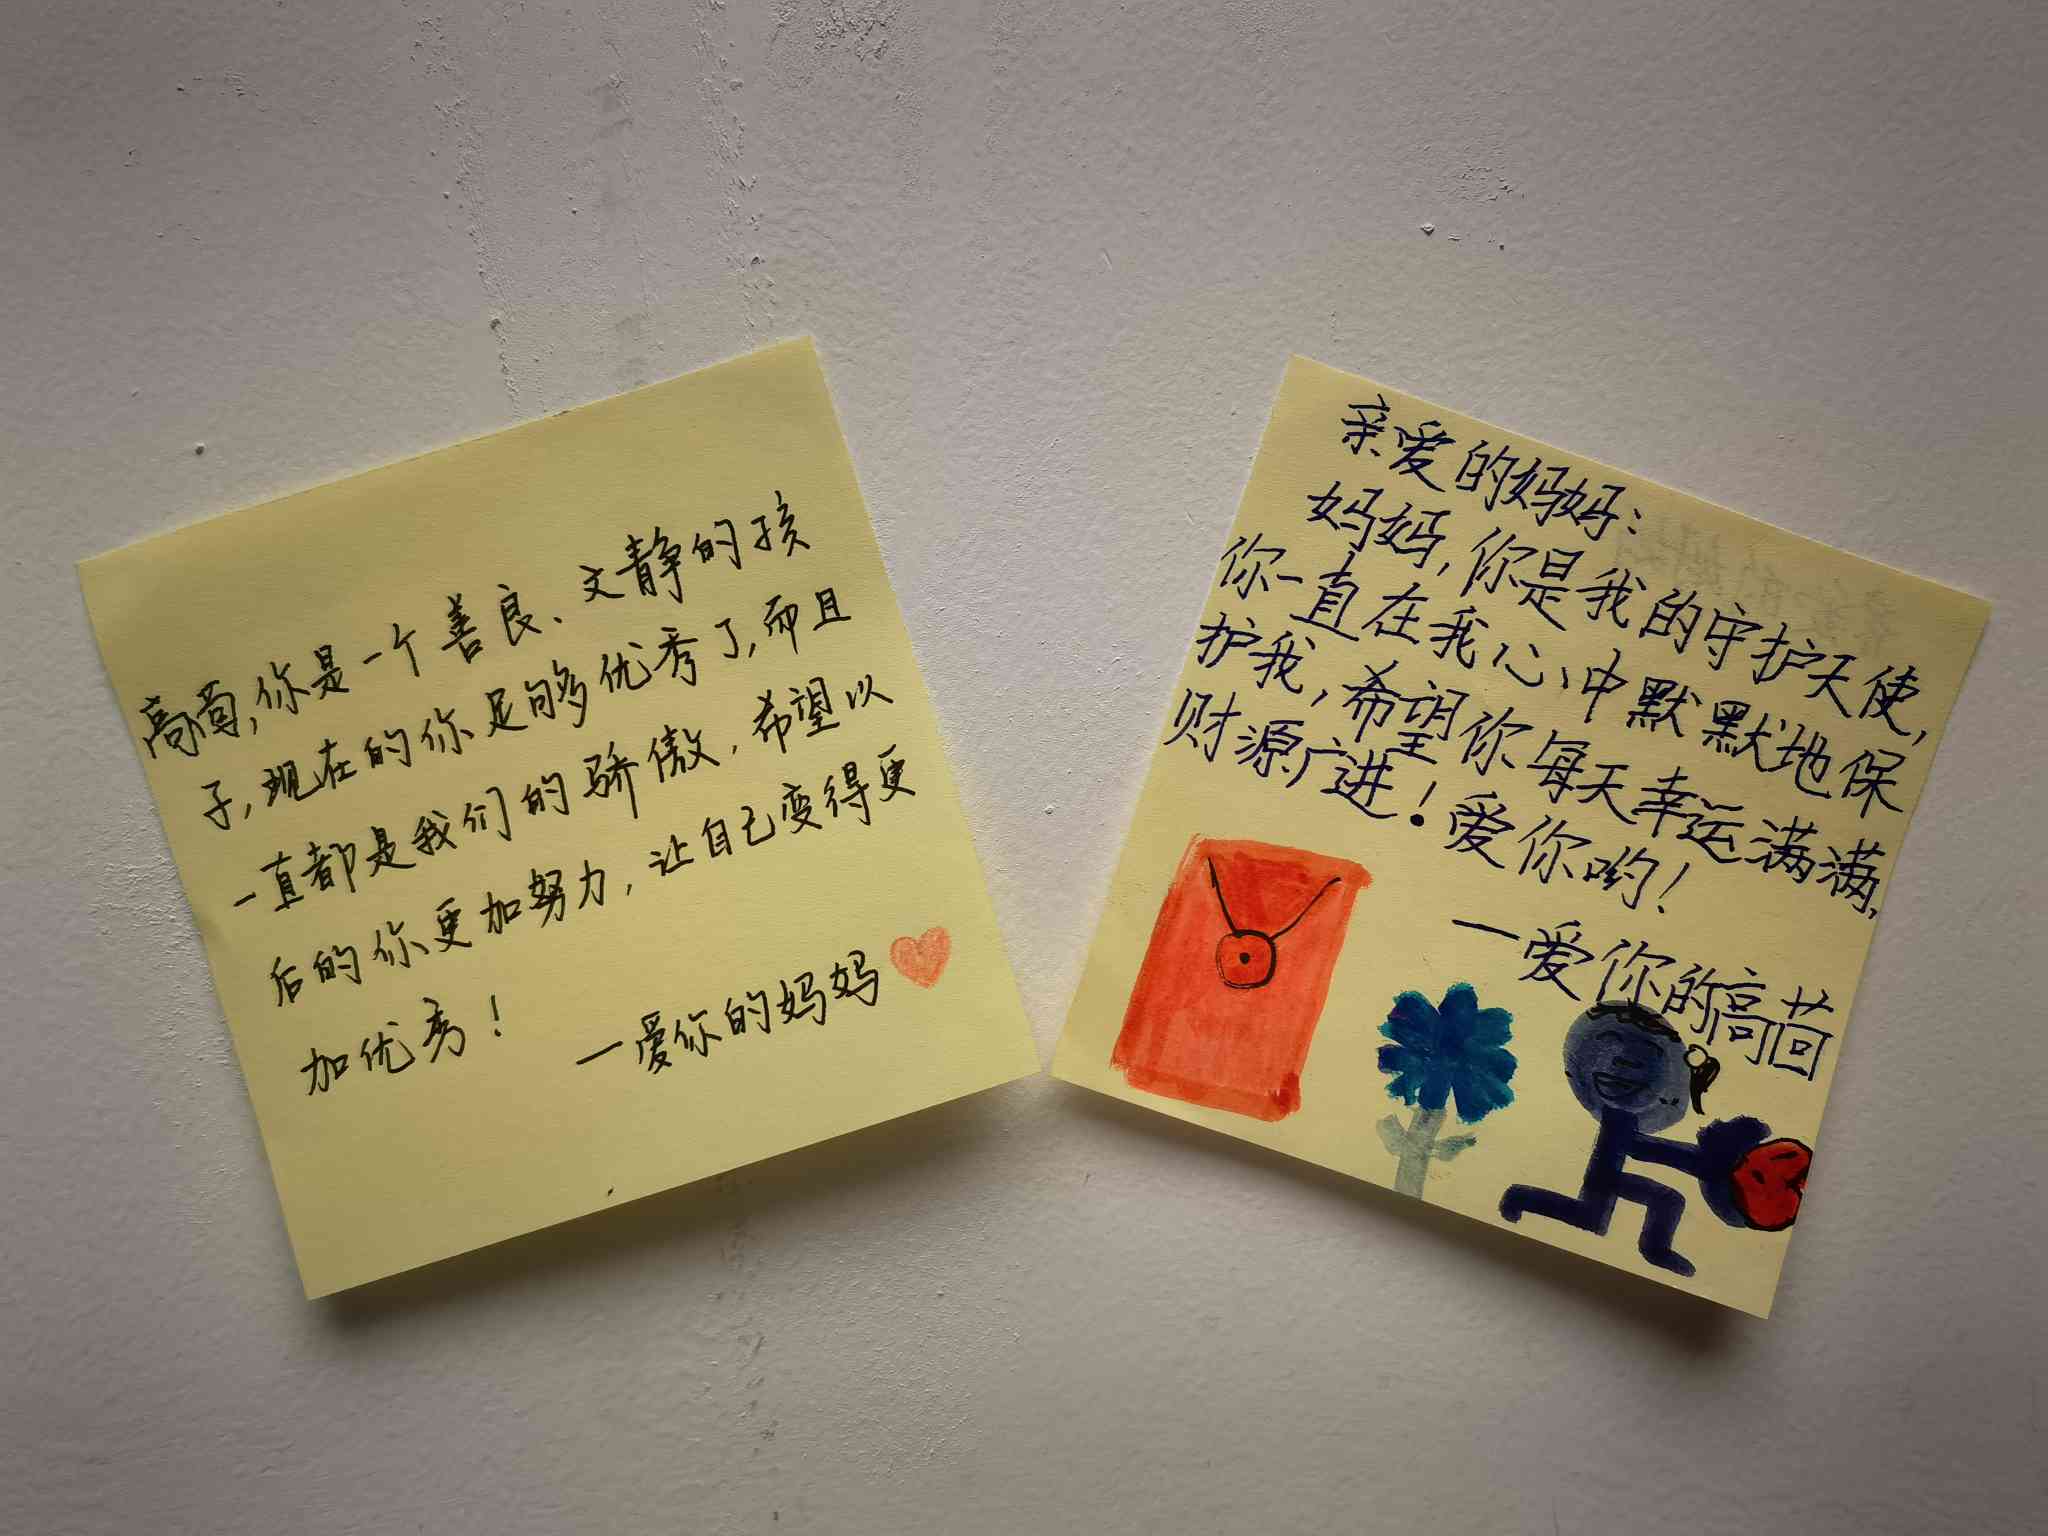 高茴,你是一个善良、文静的孩
子,现在的你足够优秀了,而且
一直都是我们的骄傲,希望以
后的你更加努力,让自己变得更
加优秀!
一爱你的妈妈
亲爱的妈妈:
妈妈,你是我的守护天使,
你一直在我心中默默地保
护我,希望你每天幸运满满,
财源广进!爱你哟!
一爱你的高茴